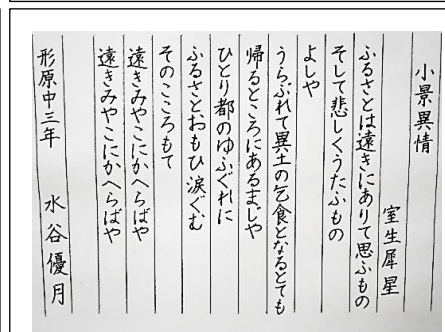 小景異情
室生犀星
ふるさとは遠きにありて思ふもの
そして悲しくうたふもの
よしや
うらぶれて異土の乞食となるとても
帰るところにあるまじや
ひとり都のゆふぐれに
ふるさとおもひ涙ぐむ
そのこころもて
遠きみやこにかへらばや
遠きみやこにかへらばや
形原中三年 水谷優月